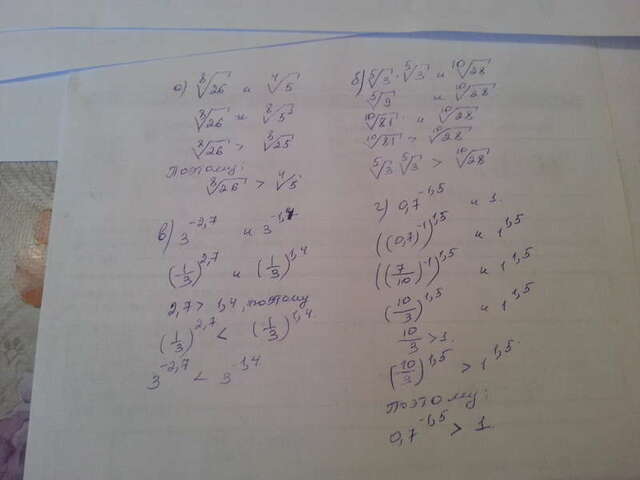 а) ⁸√26 и ⁴√5
⁸√26 и ⁸√5²
⁸√26 > ⁸√25
поэтому:
⁸√26 > ⁴√5
б) ⁵√3 · ⁵√3 и ¹⁰√28
⁵√9 и ¹⁰√28
¹⁰√81 и ¹⁰√28
¹⁰√81 > ¹⁰√28
⁵√3 · ⁵√3 > ¹⁰√28
в) 3^-2,7 и 3^-1,4
(1/3)^2,7 и (1/3)^1,4
2,7 > 1,4, поэтому
(1/3)^2,7 < (1/3)^1,4
3^-2,7 < 3^-1,4
г) 0,7^-1,5 и 1.
((0,7)^-1)^1,5 и 1^1,5
((7/10)^-1)^1,5 и 1^1,5
(10/3)^1,5 и 1^1,5
10/3 > 1.
(10/3)^1,5 > 1^1,5.
поэтому:
0,7^-1,5 > 1.